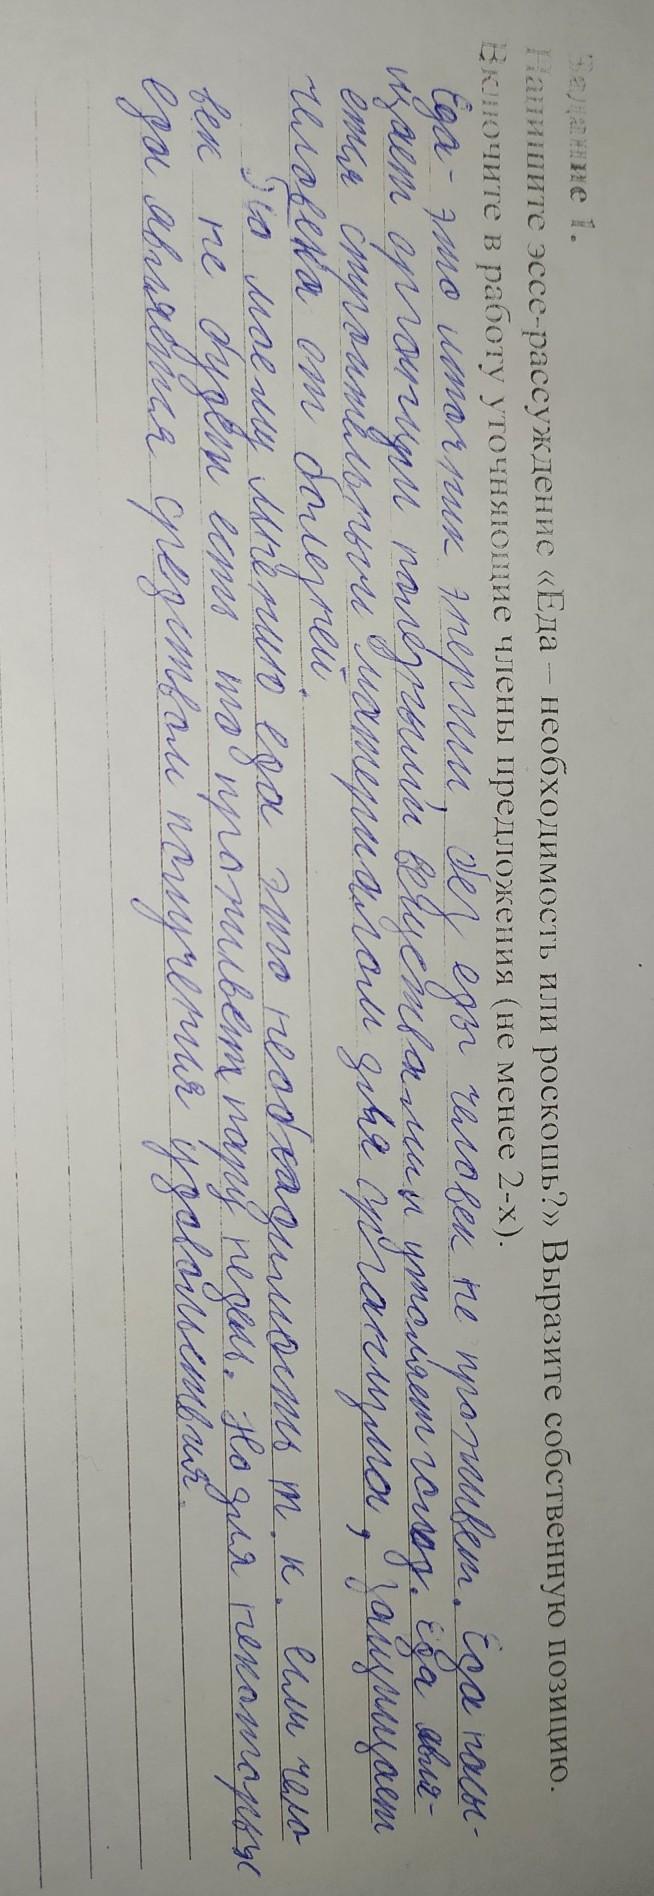 Задание 1.
Напишите эссе-рассуждение «Еда – необходимость или роскошь?» Выразите собственную позицию.
Включите в работу уточняющие члены предложения (не менее 2-х).
Еда - это источник энергии, без еды человек не проживет. Еда насы-
щает организм полезными веществами и утоляет голод. Еда явля-
ется строительным материалом для организма, защищает
человека от болезней.
По моему мнению еда это необходимость т. к. если чело
век не будет есть то проживет пару недель. Но для некоторых
еда является средством получения удовольствия.